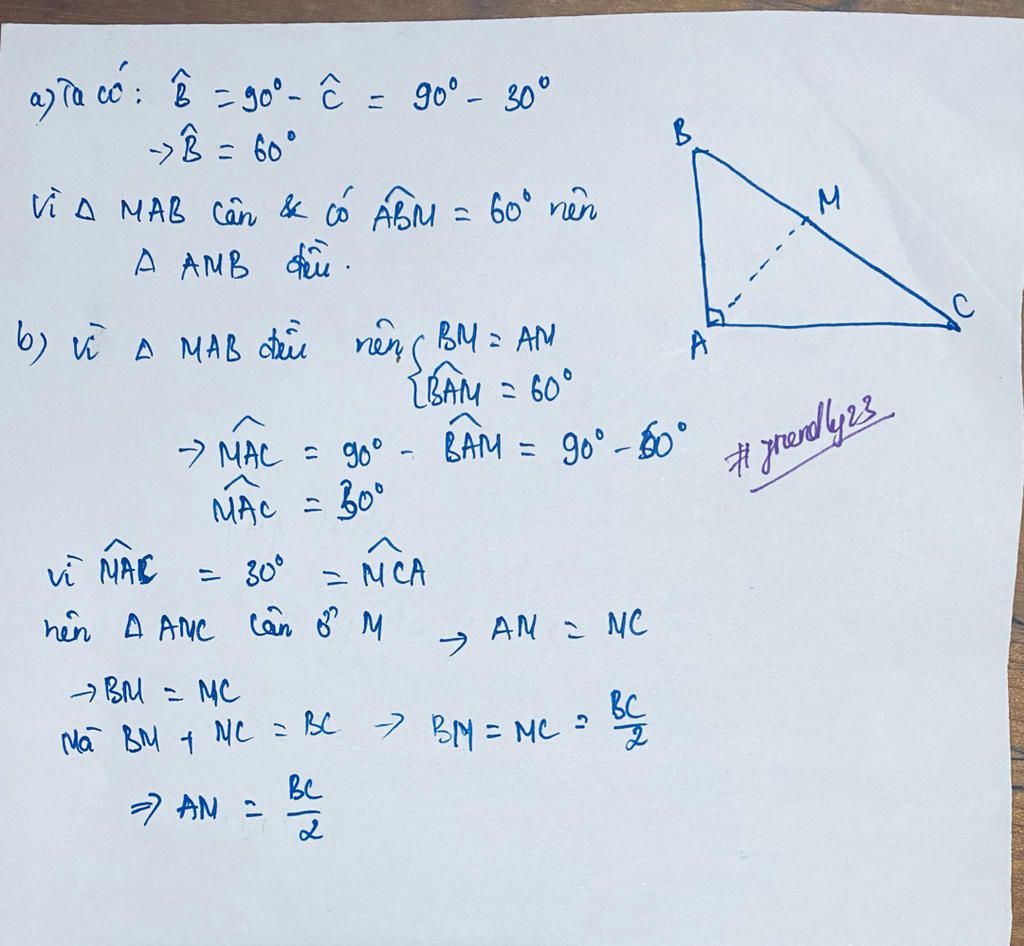 a) Ta có: B̂ = 90° - Ĉ = 90° - 30°
→ B̂ = 60°
Vì Δ MAB cân & có ABM̂ = 60° nên
Δ AMB đều.
b) Vì Δ MAB đều nên { BM = AM
BAM̂ = 60°
→ MAĈ = 90° - BAM̂ = 90° - 60°
MAĈ = 30°
Vì MAĈ = 30° = MCÂ
nên Δ AMC cân ở M → AM = MC
→ BM = MC
Mà BM + MC = BC → BM = MC = BC/2
⇒ AM = BC/2
B
M
C
A